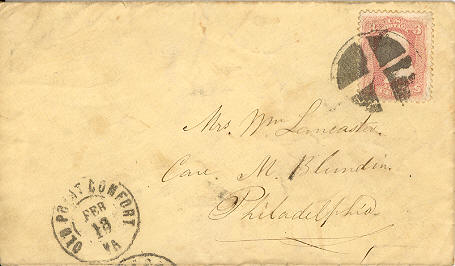 3 3
Mrs. Wm Lancaster.
Care. M. Blundin.
Philadelphia
OLD POINT COMFORT
FEB
13
VA